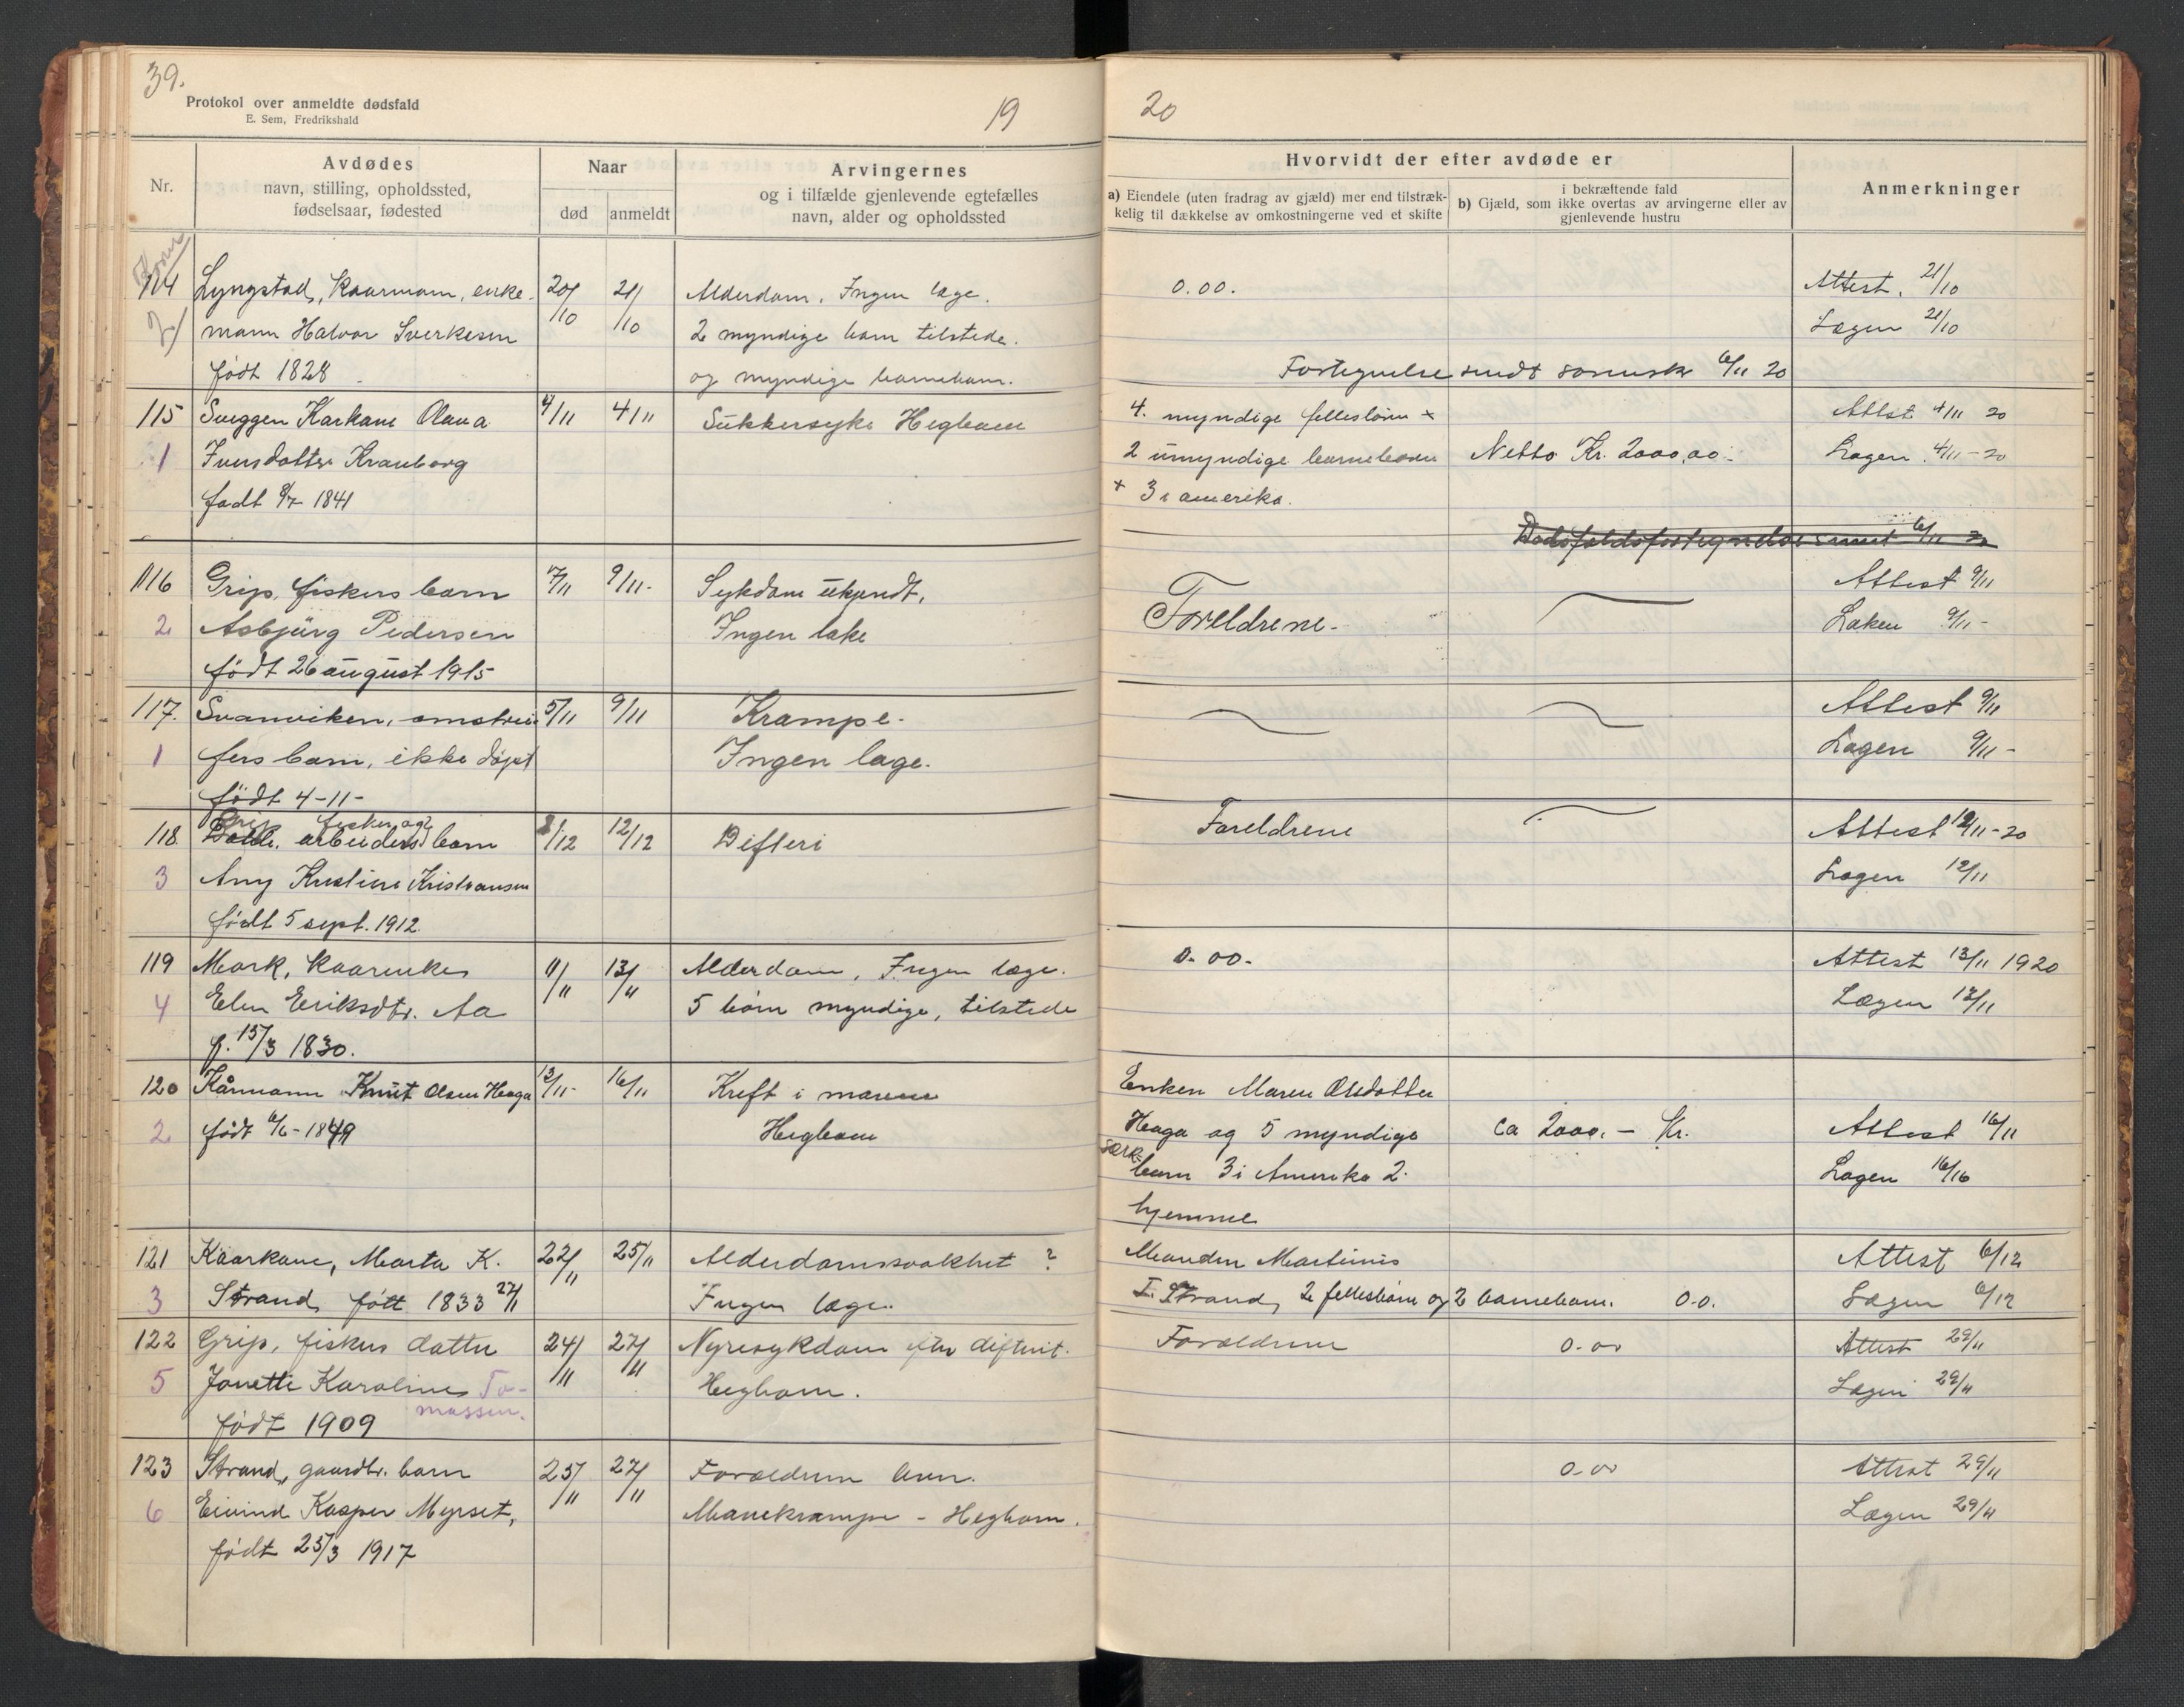 39.
Protokol over anmeldte dødsfald
E. Sem, Fredrikshald
19
Nr.
Avdødes
navn, stilling, opholdssted,
fødselsaar, fødested
Naar
død
anmeldt
Arvingernes
og i tilfælde gjenlevende egtefælles
navn, alder og opholdssted
114 Lyngstad, Kaarmann, enke- 20/10 21/10 Alderdom, Ingen læge.
mann Halvor Sverkesen 2 myndige barn tilstede.
født 1828 og myndige barnebarn.
115 Sveggen Karkone Olava 4/11 4/11 Sukkersyke Hegbom
1 Iversdotter Kranborg
født 8/7 1841
116 Grip, fiskers barn 7/11 9/11- Sykdom ukjendt,
2 Asbjürg Pedersen Ingen læke
født 26 august 1915
117. Svanviken, omstrei 5/11 9/11 Krampe-
1 fers barn, ikke døpt Ingen læge.
født 4-11-
Grip fisker og
118 arbeiders barn 8/12 12/12 Difteri
3 Any Kristine Kristiansen
født 5 sept. 1912.
119 Mork, kaarenke 11/11 13/11 Alderdom, Ingen læge.
4 Elen Eriksdtr. Aa 5 børn myndige, tilstede
f. 15/3 1830.
120 Kårmann Knut Olsen Hoaga 13/11- 16/11 Kreft i maven
2 født 6/6-1849 Hegbom
121 Kaarkone, Marta K. 22/11 25/11 Alderdomssvakhet ?
3 Strand, født 1833 27/11 Ingen læge.
122 Grip, fiskers datter 24/11 27/11 Nyresykdom efter difterit.
5 Jonette Karoline To-
massen. Hegbom.
født 1909
123 Strand, gaardbr. barn 25/11 27/11 Forældrene lever.
6 Eivind Kasper Myrset, Mavekrampe - Hegbom.
født 25/3 1917
20
Hvorvidt der efter avdøde er
a) Eiendele (uten fradrag av gjæld) mer end tilstræk-
kelig til dækkelse av omkostningerne ved et skifte
i bekræftende fald
b) Gjæld, som ikke overtas av arvingerne eller av
gjenlevende hustru
Anmerkninger
0.00. Attest. 21/10
Lægen 21/10
Fortegnelse sendt sorensk 6/11 20
4. myndige fellesbørn x Attest 4/11 20
2 umyndige barnebarn Netto Kr. 2000,00 Lægen 4/11-20
x 3 i amerika.
Dødsfaldsfortegnelse sendt 6/11 20
Attest 9/11
Foreldrene- Læken 9/11-
Attest 9/11
Lægen 9/11-
Foreldrene Attest 12/11-20
Lægen 12/11
0.00- Attest 13/11 1920
Lægen 13/11
Enken Maren Olsdotter
Hoaga og 5 myndige ca 2000.- Kr. Attest 16/11
særk-
barn 3 i Amerika 2 Lægen 16/16
hjemme
Manden Martinus Attest 6/12
I. Strand, 2 fellesbørn og 2 barnebarn. 0-0. Lægen 6/12
Forældrene 0-00 Attest 29/11
Lægen 29/11
0-00 Attest 29/11
Lægen 29/11